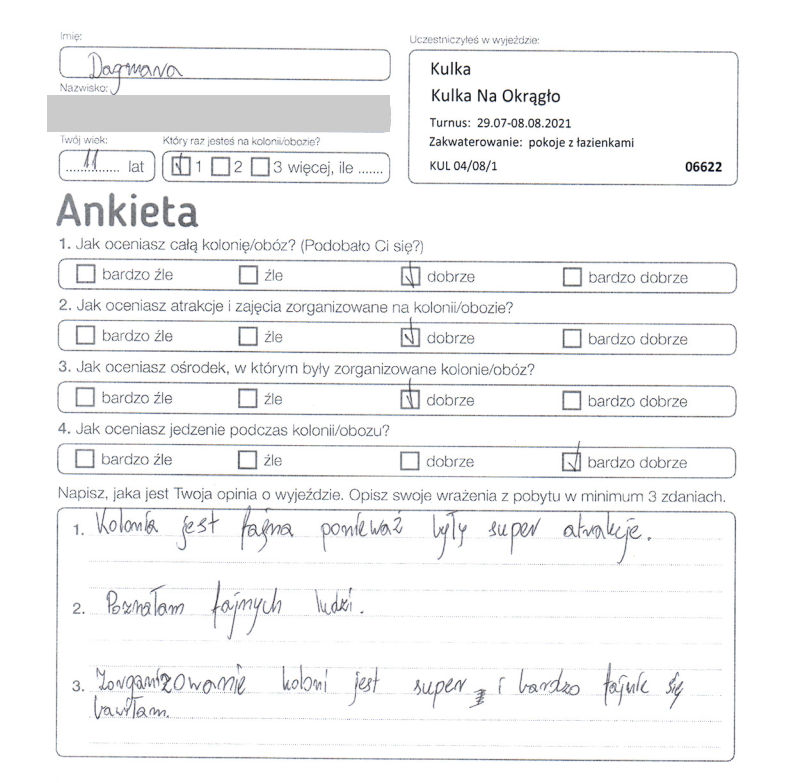 Imię:
Dagmara
Nazwisko:
Twój wiek:
11 lat
Który raz jesteś na kolonii/obozie?
1 2 3 więcej, ile .......
Uczestniczyłeś w wyjeździe:
Kulka
Kulka Na Okrągło
Turnus: 29.07-08.08.2021
Zakwaterowanie: pokoje z łazienkami
KUL 04/08/1 06622
Ankieta
1. Jak oceniasz całą kolonię/obóz? (Podobało Ci się?)
bardzo źle źle dobrze bardzo dobrze
2. Jak oceniasz atrakcje i zajęcia zorganizowane na kolonii/obozie?
bardzo źle źle dobrze bardzo dobrze
3. Jak oceniasz ośrodek, w którym były zorganizowane kolonie/obóz?
bardzo źle źle dobrze bardzo dobrze
4. Jak oceniasz jedzenie podczas kolonii/obozu?
bardzo źle źle dobrze bardzo dobrze
Napisz, jaka jest Twoja opinia o wyjeździe. Opisz swoje wrażenia z pobytu w minimum 3 zdaniach.
1. Kolonia jest fajna ponieważ były super atrakcje.
2. Poznałam fajnych ludzi.
3. Zorganizowanie koloni jest super i bardzo fajnie się
bawiłam.